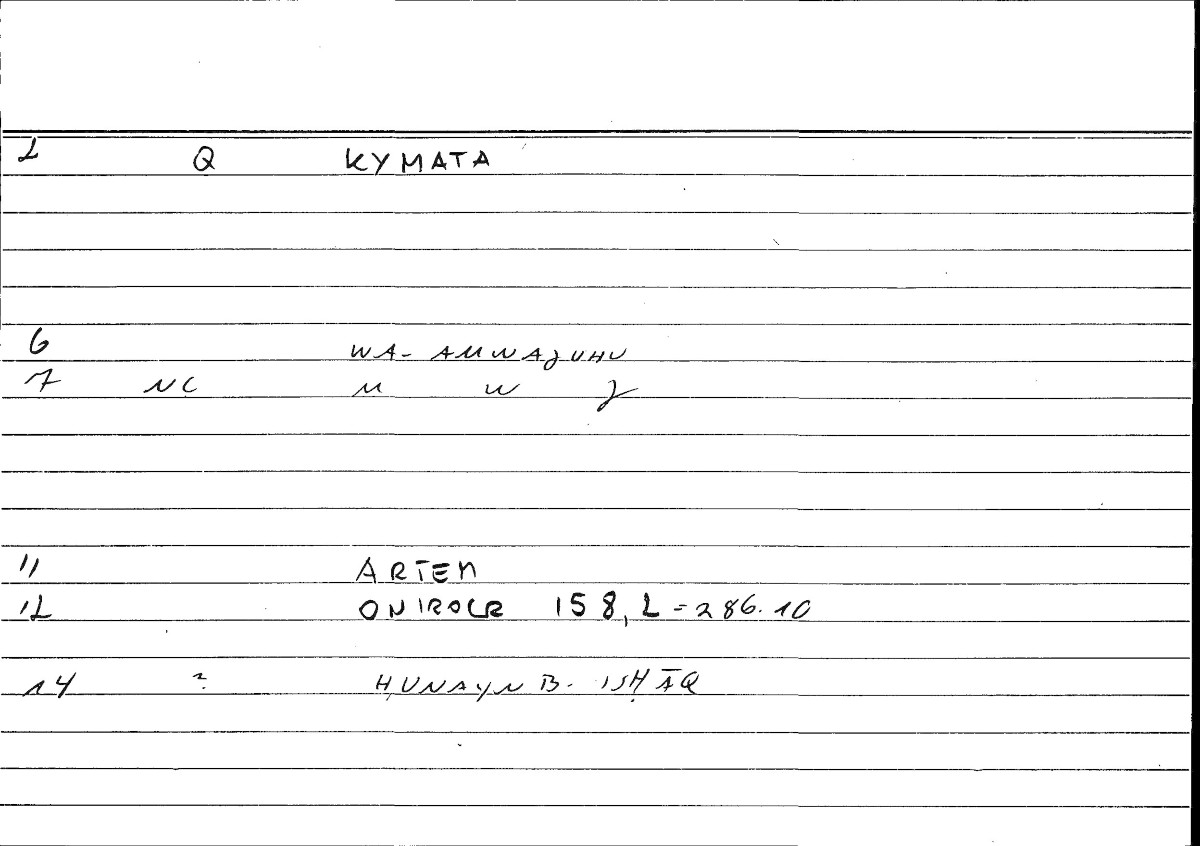 2 Q KYMATA
6 WA- AMWAGUHU
7 NC M W G
11 ARTEM
12 ONIROCR 158, 2 = 286.10
14 ? ḤUNAYN B. ISḤĀQ